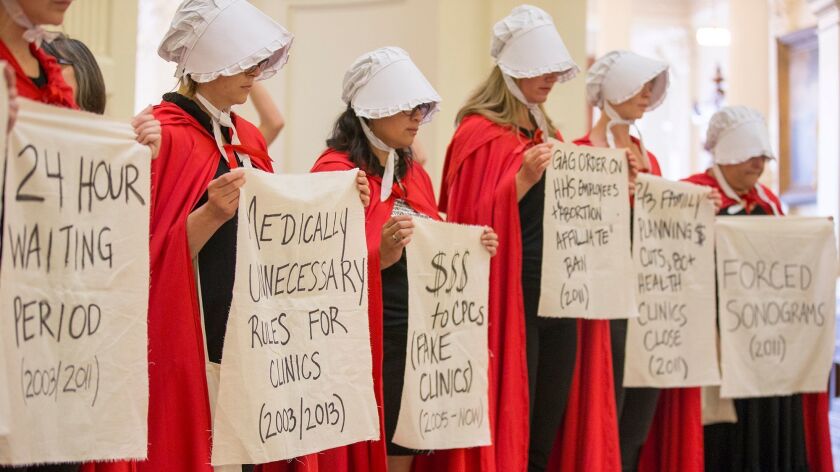 24 HOUR
WAITING
PERIOD
(2003/2011)
MEDICALLY
UNNECESSARY
RULES FOR
CLINICS
(2003/2013)
$$$
to CPCs
(FAKE
CLINICS)
(2005-NOW)
GAG ORDER ON
HHS EMPLOYEES
+ ABORTION
AFFILIATE"
BAN
(2011)
2/3 FAMILY
PLANNING $
CUTS, BC+
HEALTH
CLINICS
CLOSE
(2011)
FORCED
SONOGRAMS
(2011)